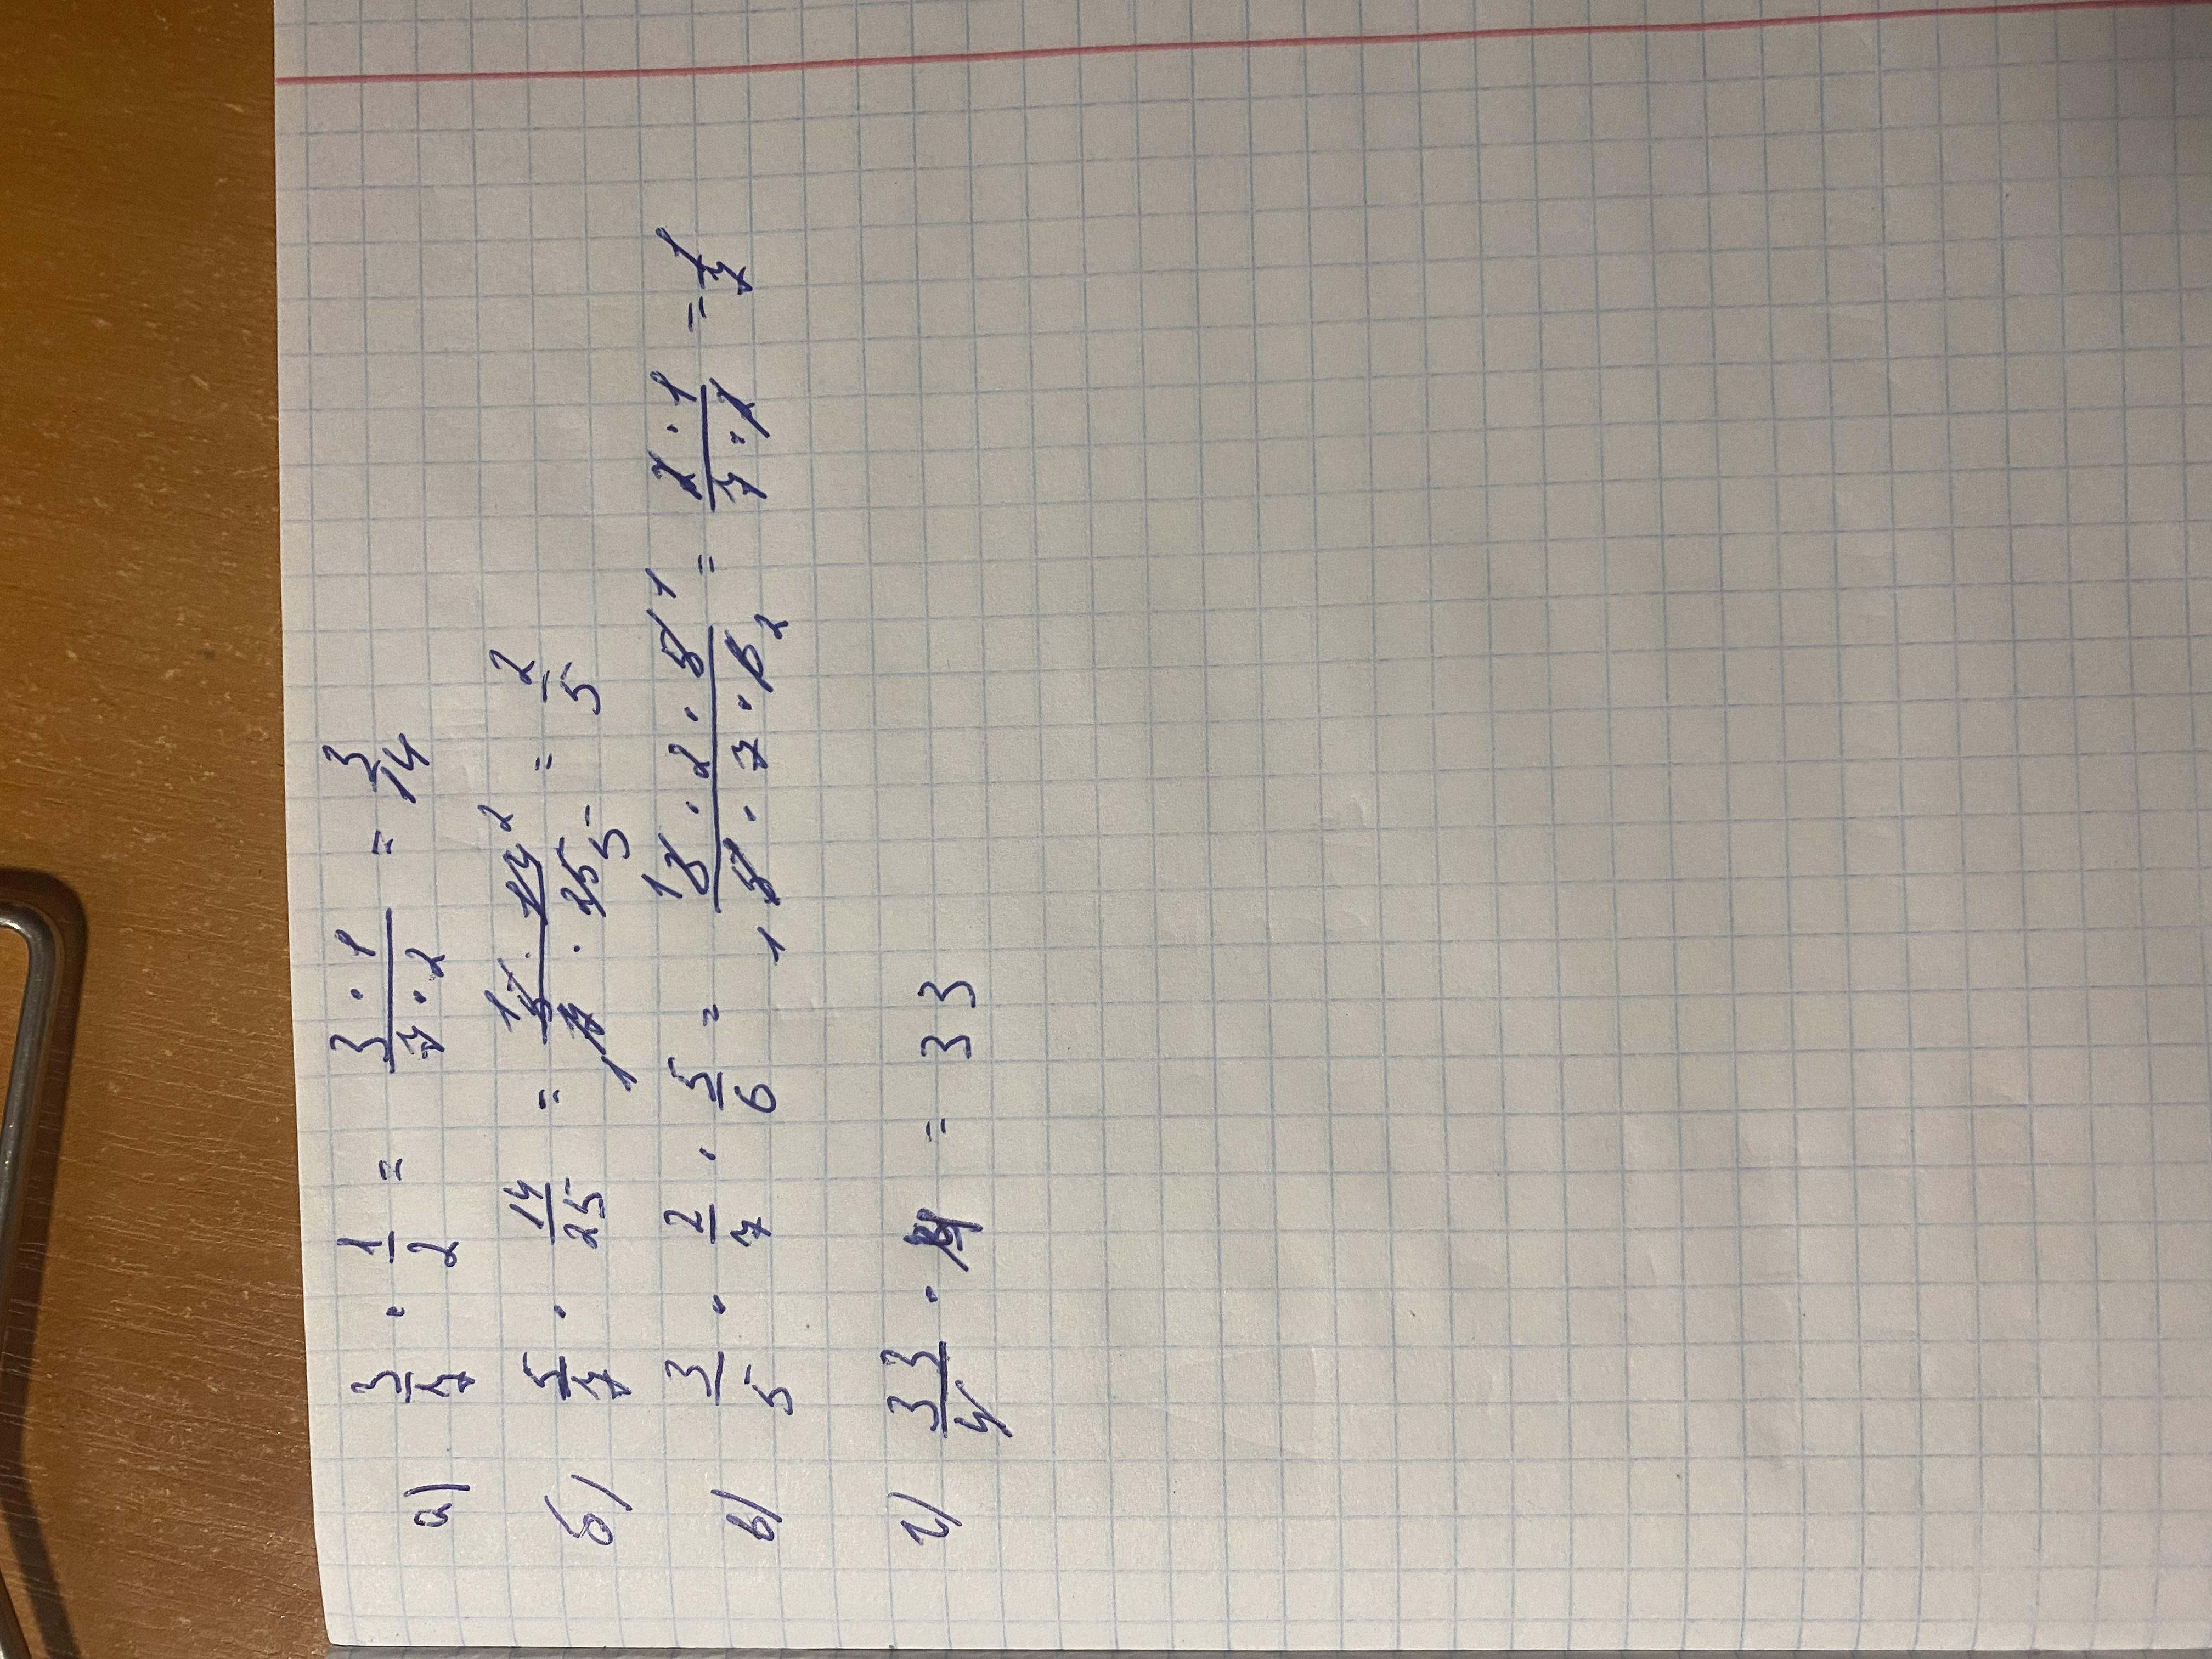 а) 3/7 · 1/2 = 3 · 1 / 7 · 2 = 3/14
б) 5/7 · 14/25 = 1 5 · 14 2 / 1 7 · 25 5 = 2/5
в) 3/5 · 2/7 · 5/6 = 1 3 · 2 · 5 1 / 1 5 · 7 · 6 2 = 2 · 1 / 7 · 2 = 1/7
г) 33/4 · 4 = 33